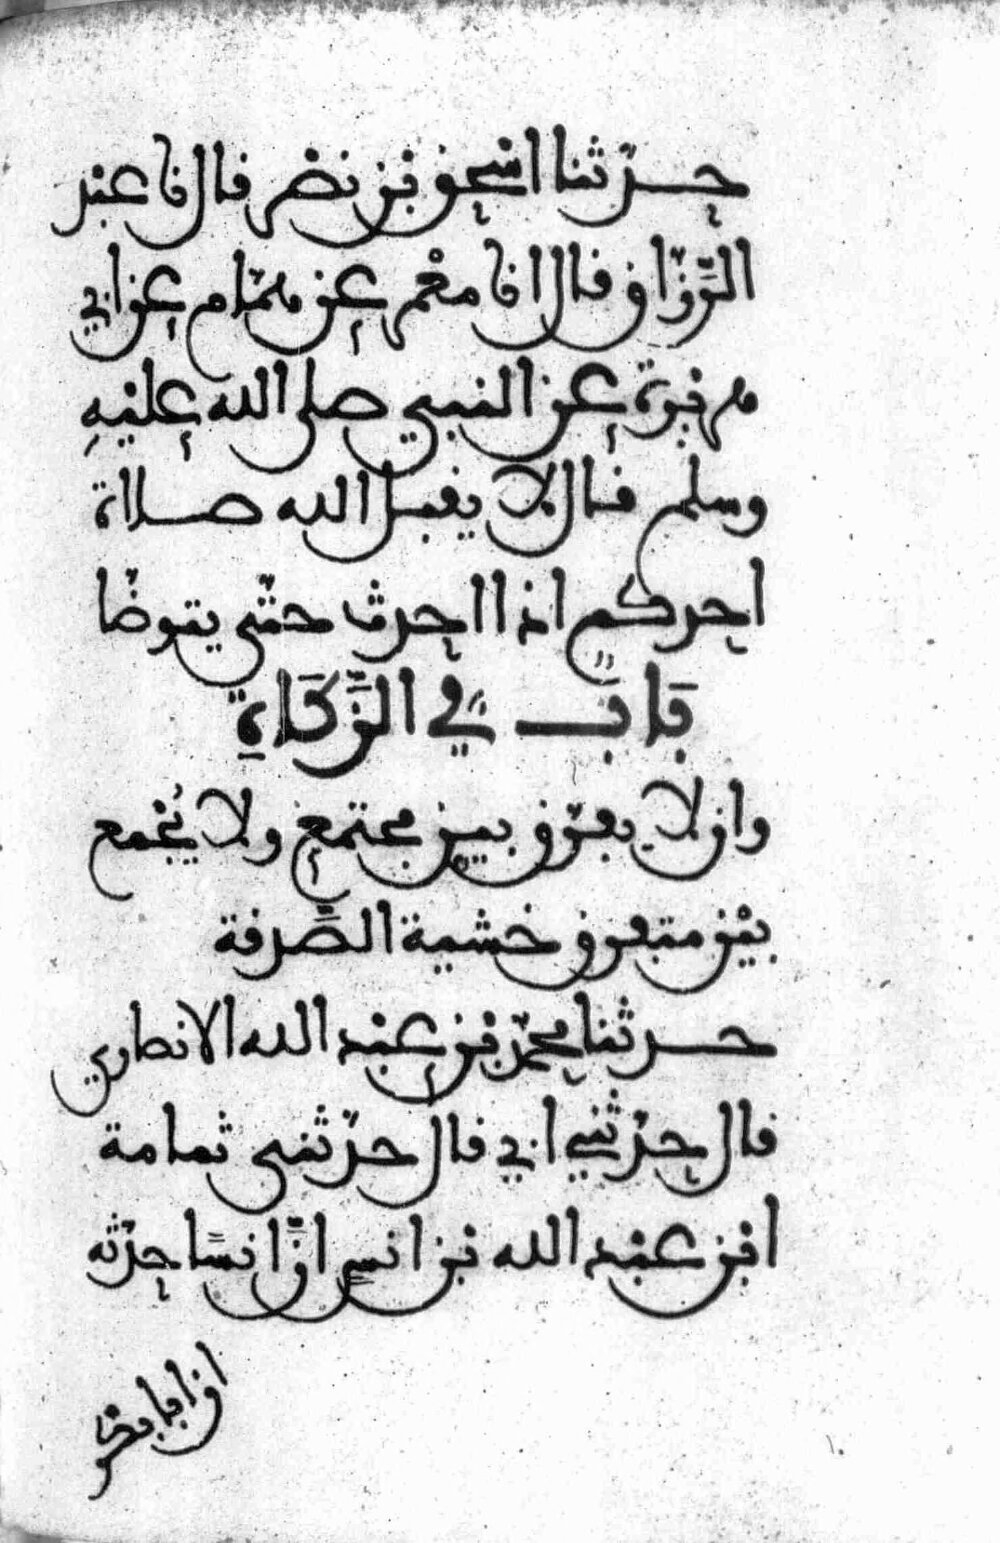 حدثنا اسحق بن نصر قال نا عبد
الرزاق قال انا معمر عن همام عن ابي
هريرة عن النبي صلى الله عليه
وسلم قال لا يقبل الله صلاة
احدكم اذا احدث حتى يتوضا
باب في الزكاة
وان لا يفرق بين مجتمع ولا يجمع
بين متفرق خشية الصدقة
حدثنا محمد بن عبد الله الانصاري
قال حدثني ابي قال حدثني ثمامة
ابن عبد الله بن انس ان انسا حدثه
ان ابا بكر